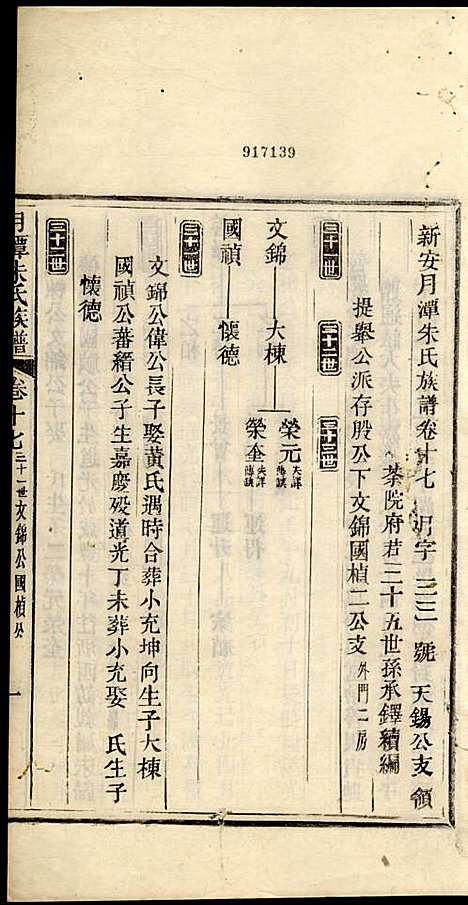 917139
新安月潭朱氏族譜卷十七 月字 三三 號 天錫公支 領
茶院府君三十五世孫承鐸續編
提舉公派存股公下文錦國楨二公支 外門二房
三十一世 三十二世 三十三世
文錦 大棟 榮元 失詳 傳誤
榮奎 失詳 傳誤
國禎 懷德
三十一世
文錦公偉公長子娶黃氏遇時合葬小充坤向生子大棟
國禎公蕃縉公子生嘉慶歿道光丁未葬小充娶 氏生子
懷德
三十二世
月潭朱氏族譜 卷十七 三十一世文錦公國楨公 一